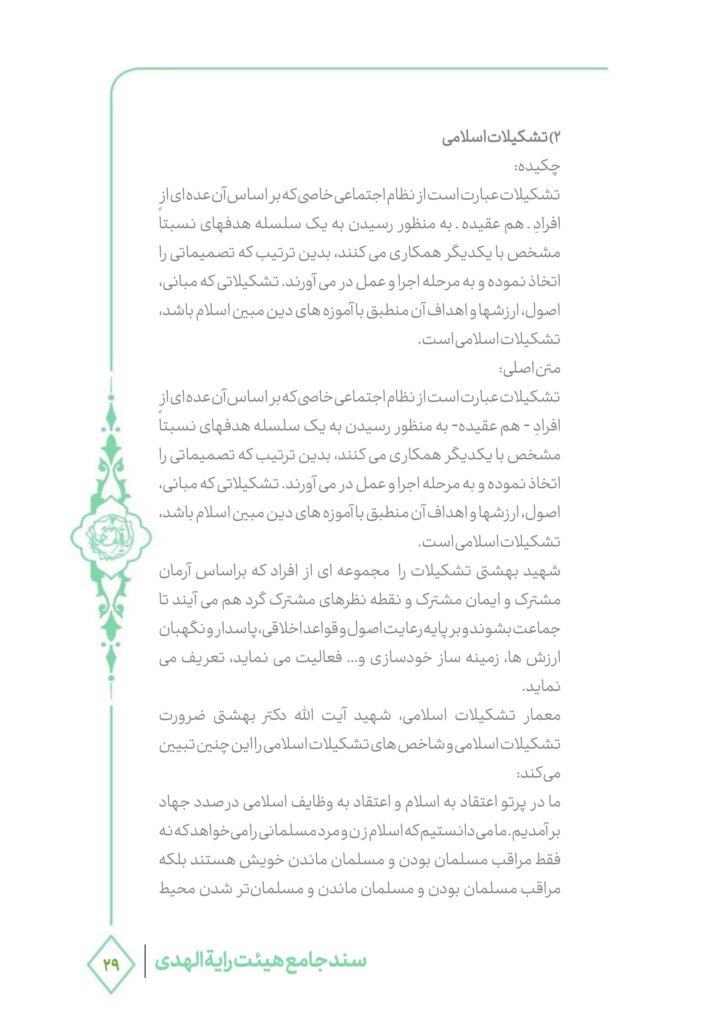 ۲) تشکیلات اسلامی
چکیده:
تشکیلات عبارت است از نظام اجتماعی خاصی که بر اساس آن عده ای از
افرادِ ـ هم عقیده ـ به منظور رسیدن به یک سلسله هدفهای نسبتاً
مشخص با یکدیگر همکاری می کنند، بدین ترتیب که تصمیماتی را
اتخاذ نموده و به مرحله اجرا و عمل در می آورند. تشکیلاتی که مبانی،
اصول، ارزشها و اهداف آن منطبق با آموزه های دین مبین اسلام باشد،
تشکیلات اسلامی است.
متن اصلی:
تشکیلات عبارت است از نظام اجتماعی خاصی که بر اساس آن عده ای از
افرادِ - هم عقیده- به منظور رسیدن به یک سلسله هدفهای نسبتاً
مشخص با یکدیگر همکاری می کنند، بدین ترتیب که تصمیماتی را
اتخاذ نموده و به مرحله اجرا و عمل در می آورند. تشکیلاتی که مبانی،
اصول، ارزشها و اهداف آن منطبق با آموزه های دین مبین اسلام باشد،
تشکیلات اسلامی است.
شهید بهشتی تشکیلات را مجموعه ای از افراد که براساس آرمان
مشترک و ایمان مشترک و نقطه نظرهای مشترک گرد هم می آیند تا
جماعت بشوند و بر پایه رعایت اصول و قواعد اخلاقی، پاسدار و نگهبان
ارزش ها، زمینه ساز خودسازی و... فعالیت می نماید، تعریف می
نماید.
معمار تشکیلات اسلامی، شهید آیت الله دکتر بهشتی ضرورت
تشکیلات اسلامی و شاخص های تشکیلات اسلامی را این چنین تبیین
می‌کند:
ما در پرتو اعتقاد به اسلام و اعتقاد به وظایف اسلامی درصدد جهاد
برآمدیم. ما می دانستیم که اسلام زن و مرد مسلمانی را می خواهد که نه
فقط مراقب مسلمان بودن و مسلمان ماندن خویش هستند بلکه
مراقب مسلمان بودن و مسلمان ماندن و مسلمان‌تر شدن محیط
سند جامع هیئت رایة الهدی
۲۹